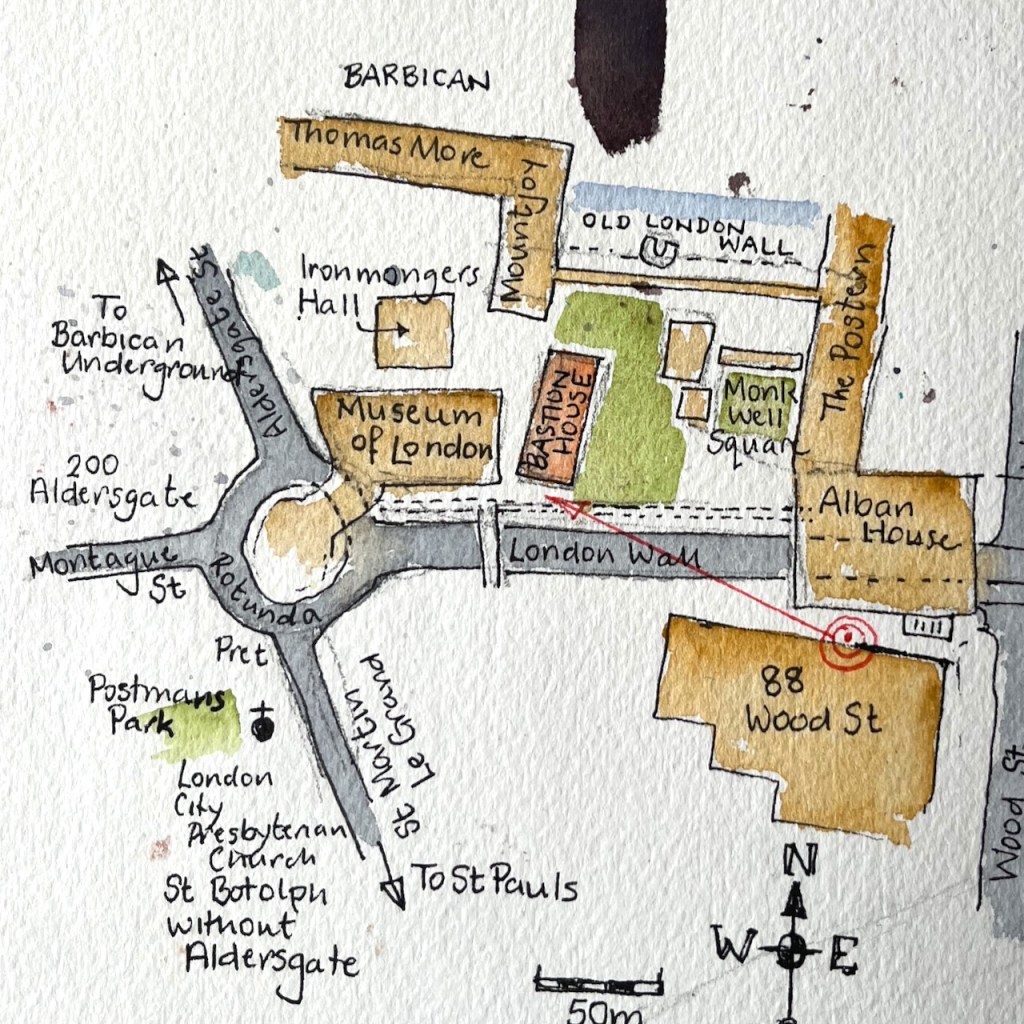 BARBICAN
Thomas More
Mountjoy
OLD LONDON
WALL
The Postern
Aldersgate St
To
Barbican
Underground
Ironmongers
Hall
BASTION
HOUSE
Monk
Well
Square
Museum
of London
200
Aldersgate
Alban
House
London Wall
Montague
St
Rotunda
Pret
Postmans
Park
88
Wood St
St Martin
Le Grand
London
City
Presbyterian
Church
St Botolph
without
Aldersgate
To St Pauls
Wood St
N
W E
50m